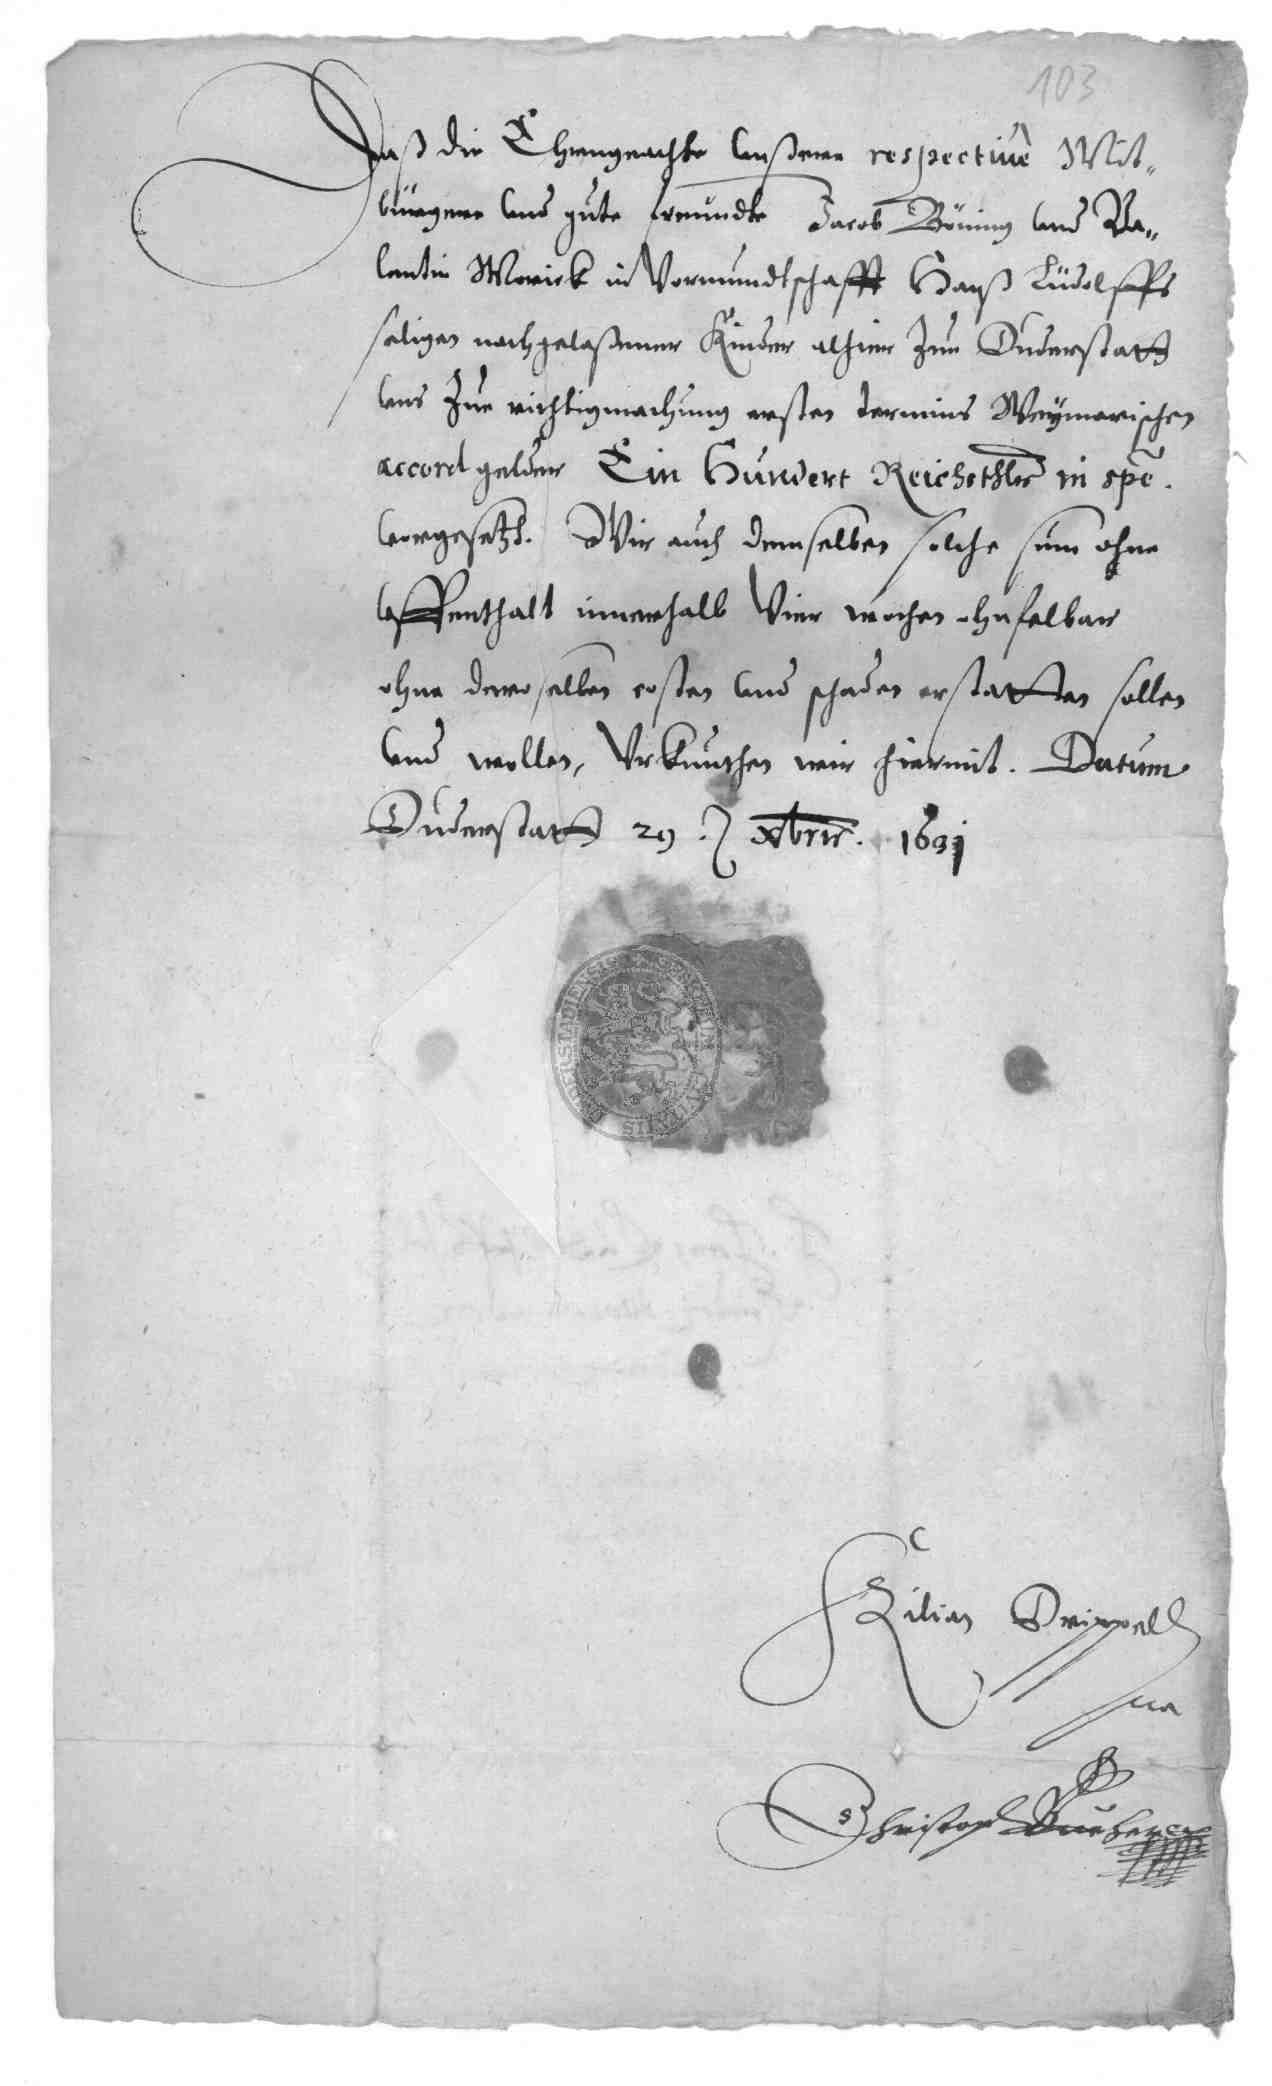 103
Daß die Ehrngeachte unßere respectivè Mit„
bürgere und gute freundte Jacob Böning und Va„
lentin Morick in Vormundtschafft Hanß Lüdolffs
seligen nachgelaßener Kinder alhier Zue Duderstatt
uns Zue richtigmachung ersten termins Weymarischen
accord gelder Ein Hundert Reichsthlr in spē.
vorgesetzt. Wir auch demselben solche sum ohne
uffenthalt innerhalb Vier wochen ohnfelbar
ohne deroselben costen und schaden erstatten sollen
und wollen, Urkunthen wir hiermit. Datum
Duderstatt 29. xbris. 1631
Kilian Drippell
Christoph